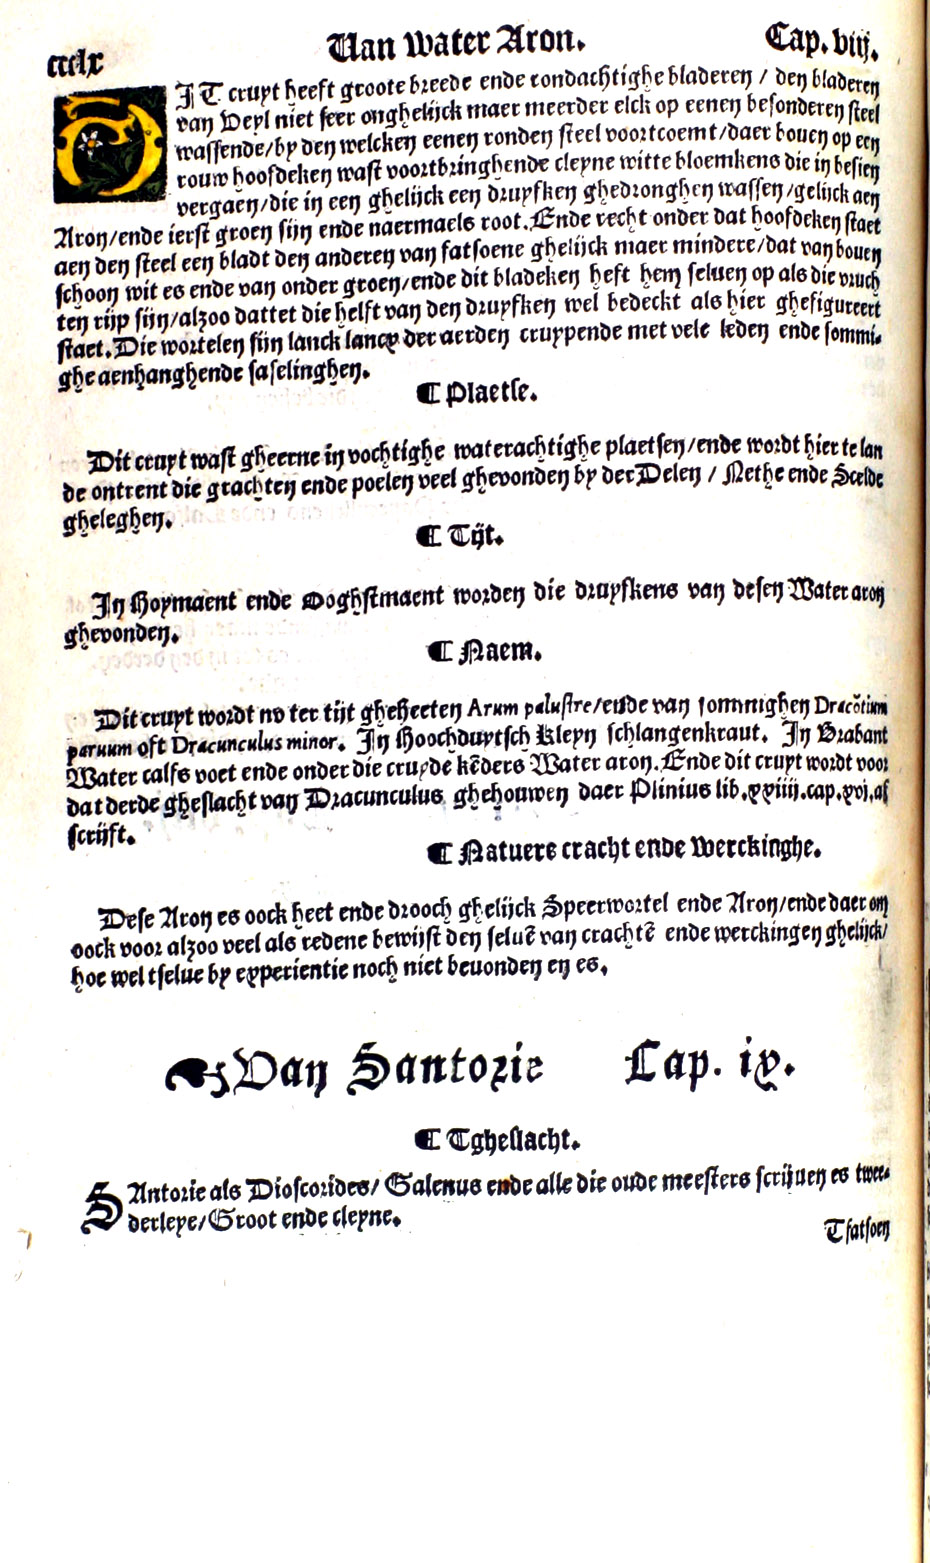 ccclx
Van water Aron.
Cap. viij.
DIT cruyt heeft groote breede ende rondachtighe bladeren / den bladeren
van Veyl niet seer onghelijck maer meerder elck op eenen besonderen steel
wassende/by den welcken eenen ronden steel voortcoemt/daer bouen op een
rouw hoofdeken wast voortbringhende cleyne witte bloemkens die in besien
vergaen/die in een ghelijck een druyfken ghedronghen wassen/gelijck aen
Aron/ende ierst groen sijn ende naermaels root. Ende recht onder dat hoofdeken staet
aen den steel een bladt den anderen van fatsoene ghelijck maer mindere/dat van bouen
schoon wit es ende van onder groen/ende dit bladeken heft hem seluen op als die vruch
ten rijp sijn/alzoo dattet die helft van den druyfken wel bedeckt als hier ghefigureert
staet. Die wortelen sijn lanck lancx der aerden cruypende met vele leden ende sommi-
ghe aenhanghende faselinghen.
¶ Plaetse.
Dit cruyt wast gheerne in vochtighe waterachtighe plaetsen/ende wordt hier te lan
de ontrent die grachten ende poelen veel ghevonden by der Delen / Nethe ende Scelde
gheleghen.
¶ Tijt.
In Hoymaent ende Ooghstmaent worden die druyfkens van desen Water aron
ghevonden.
¶ Naem.
Dit cruyt wordt nv ter tijt gheheeten Arum palustre/ende van sommighen Dracõtium
paruum oft Dracunculus minor. In Hoochduytsch Kleyn schlangenkraut. In Brabant
Water calfs voet ende onder die cruyde kẽders Water aron. Ende dit cruyt wordt voor
dat derde gheslacht van Dracunculus ghehouwen daer Plinius lib. xxiiij. cap. xvj. af
scrijft.
¶ Natuere cracht ende werckinghe.
Dese Aron es oock heet ende drooch ghelijck Speerwortel ende Aron/ende daer om
oock voor alzoo veel als redene bewijst den seluẽ van crachtẽ ende werckingen ghelijck/
hoe wel tselue by experientie noch niet beuonden en es.
Van Santorie Cap. ix.
¶ Tgheslacht.
SAntorie als Dioscorides/ Galenus ende alle die oude meesters scrijuen es twee-
derleye/Groot ende cleyne.
Tfatsoen